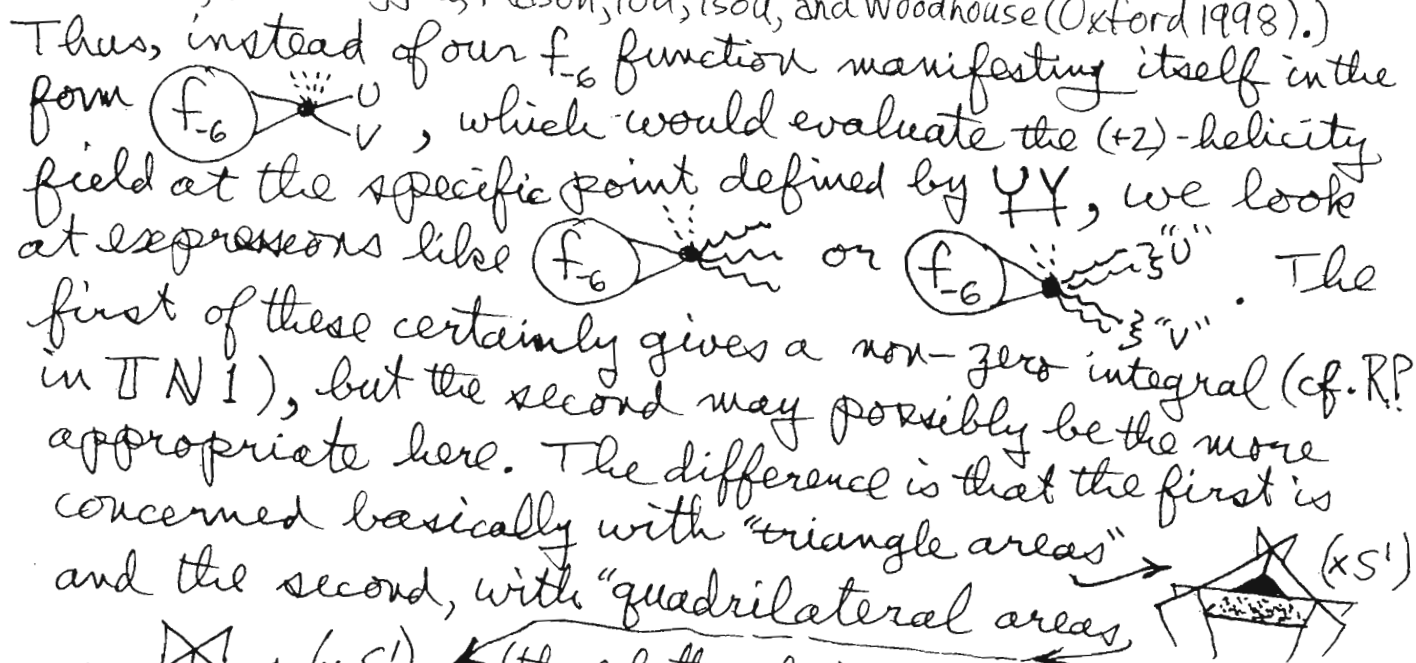 and Woodhouse (Oxford 1998).)
Thus, instead of our f₋₆ function manifesting itself in the
form f₋₆ U V , which would evaluate the (+2)-helicity
field at the specific point defined by UV, we look
at expressions like f₋₆ or f₋₆ "U" "V" . The
first of these certainly gives a non-zero integral (cf. RP
in 𝕋ℕ1), but the second may possibly be the more
appropriate here. The difference is that the first is
concerned basically with "triangle areas" (×S¹)
and the second, with "quadrilateral areas,
(×S¹)